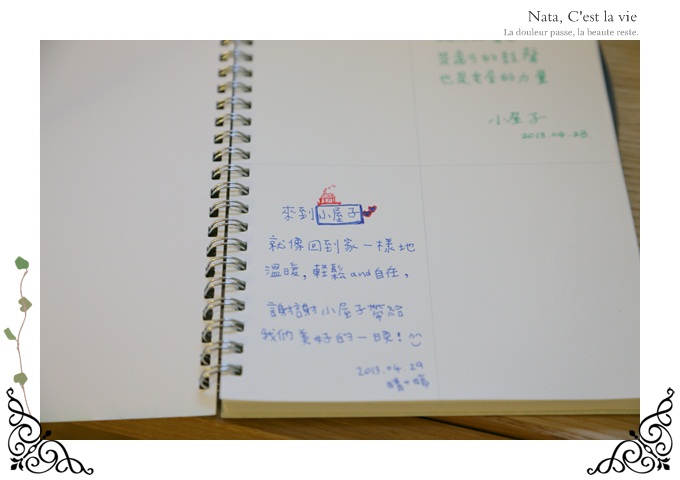 Nata, C'est la vie
La douleur passe, la beaute reste.
也是老屋的力量
小屋子
2013.04.28
來到小屋子
就像回到家一樣地
溫暖，輕鬆and自在，
謝謝小屋子帶給
我們美好的一晚！
2013.04.29